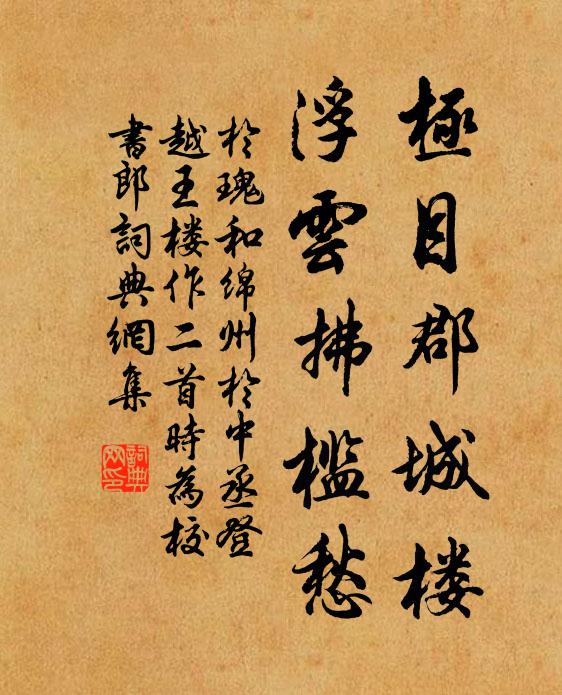 極目郡城楼
浮雲拂檻愁
於瑰和綿州於中丞登
越王楼作二首時為校
書郎詞典網集
詞典網印